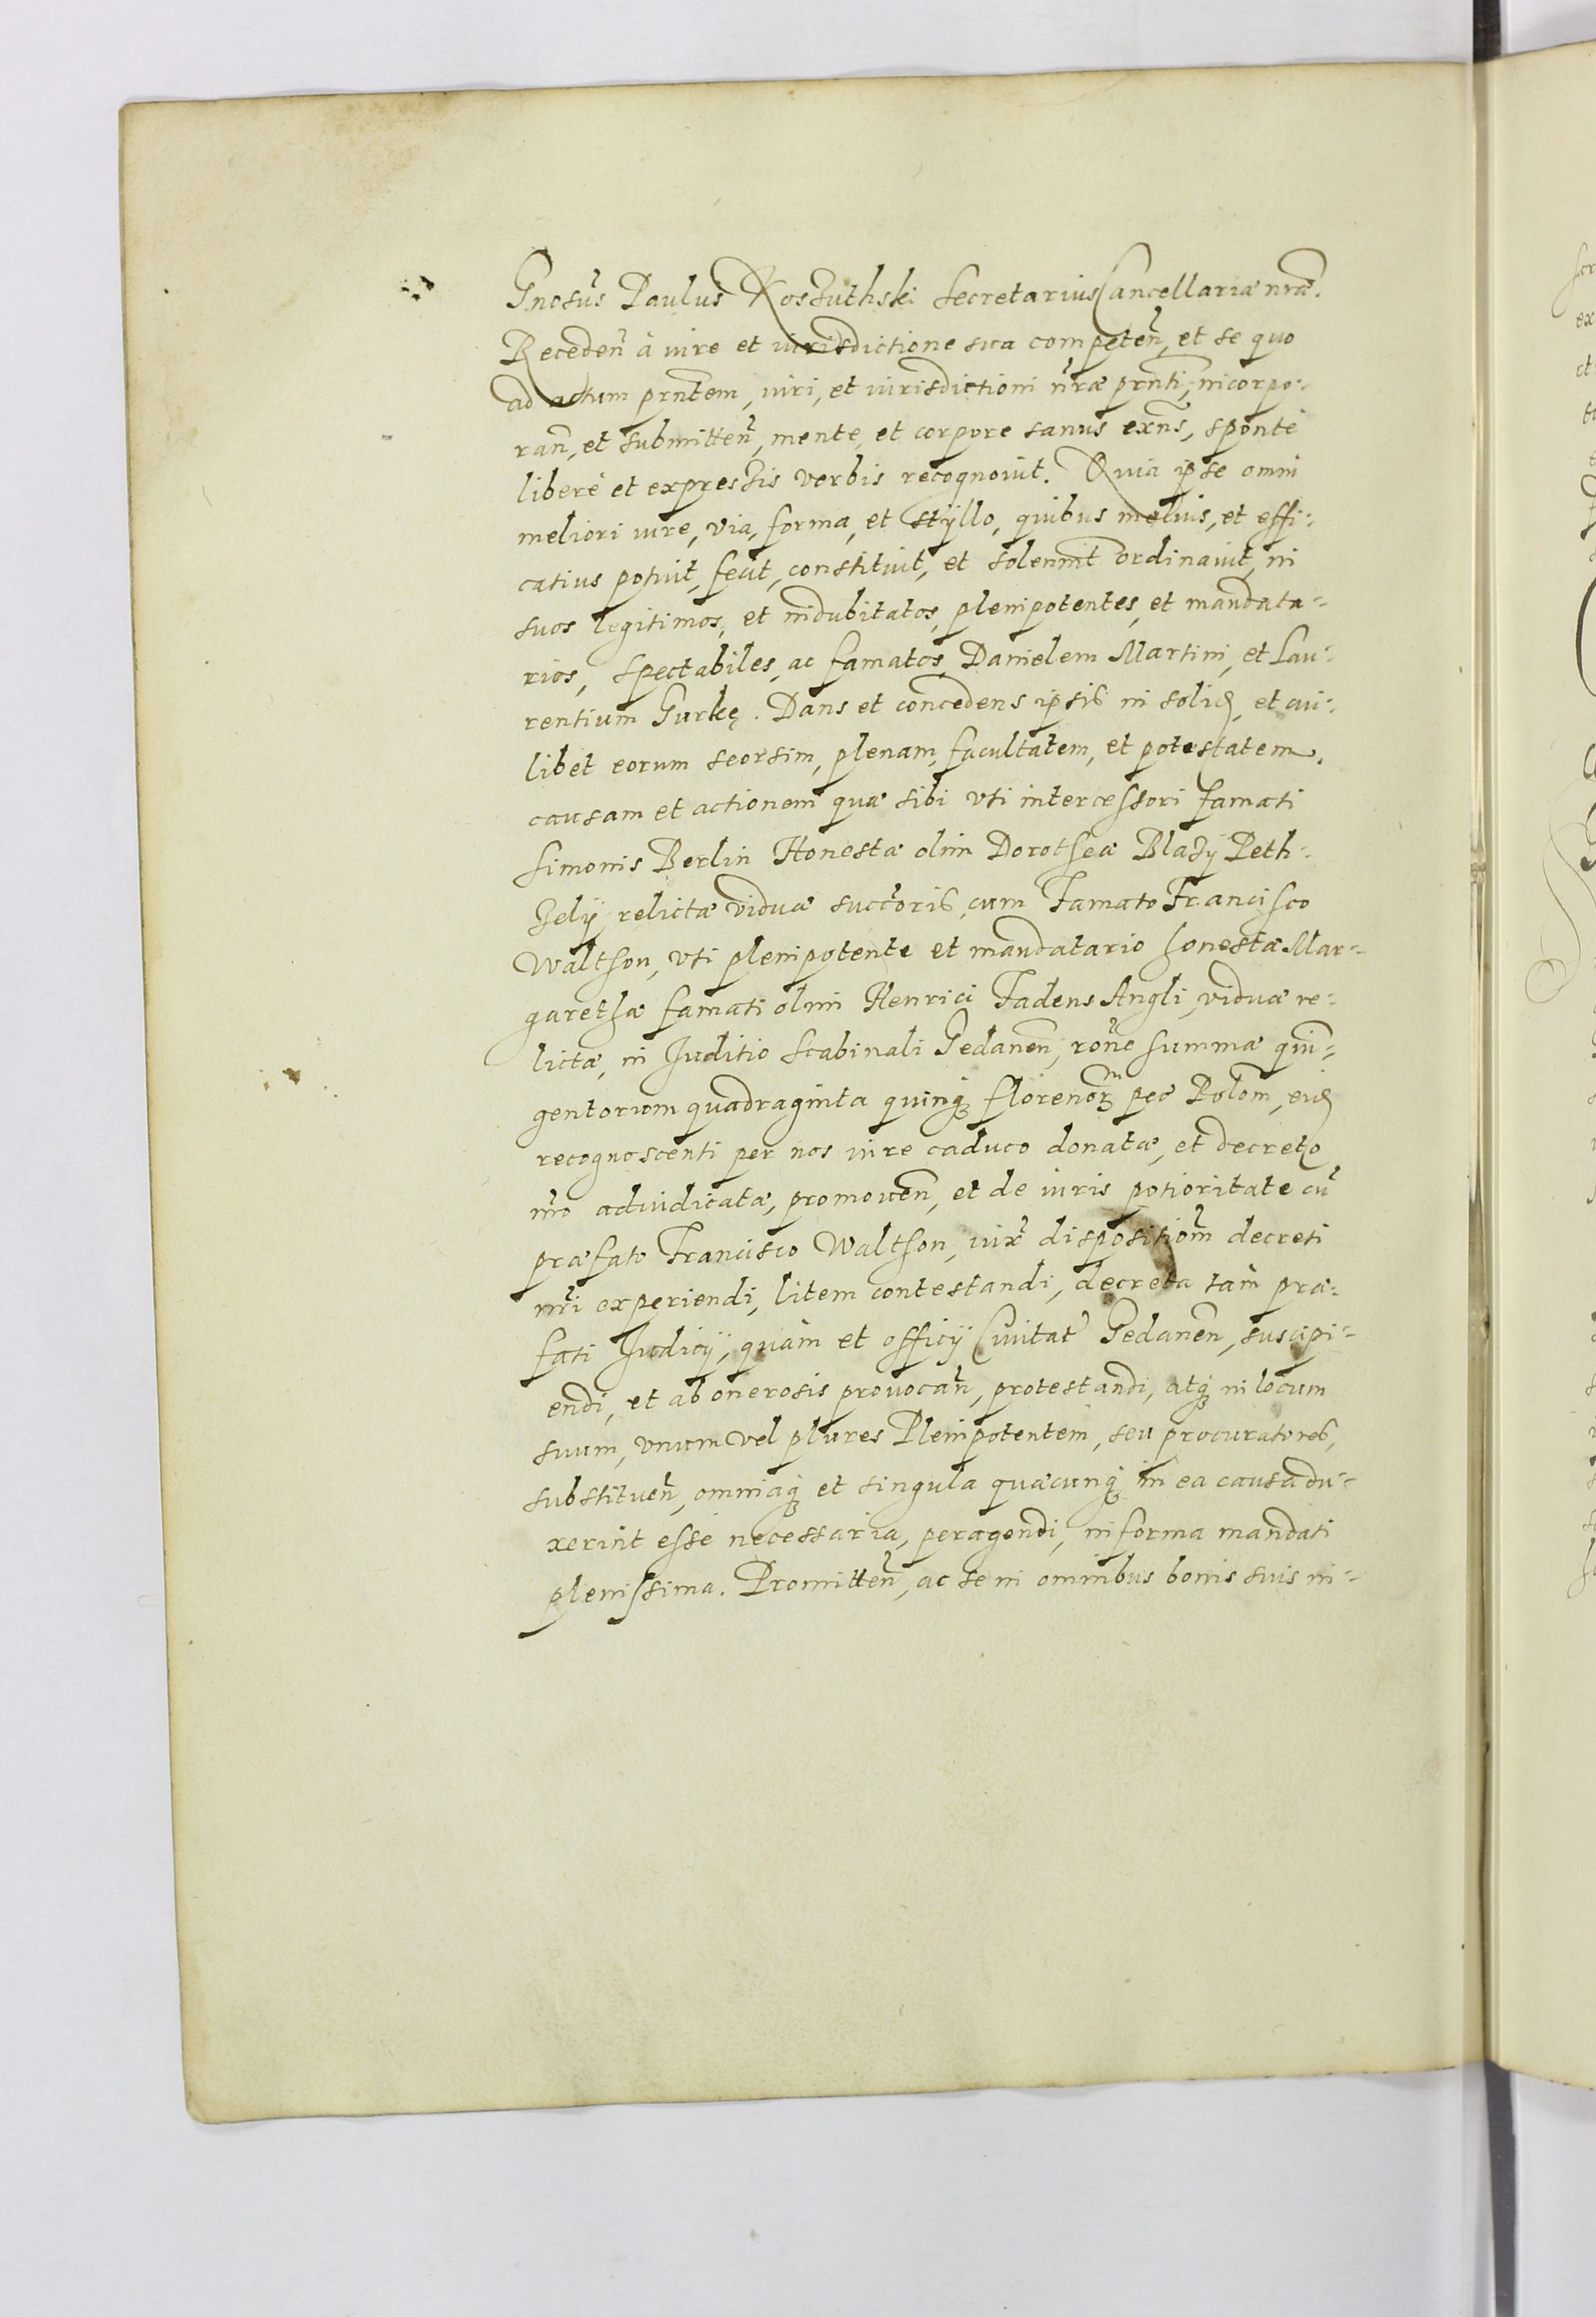 Gnosus Paulus Kosszuthski Secretarius Cancellariæ nræ.
Receden̄ à iure et iurisdictione sua competen̄, et se quo
ad actum prntem, iuri, et iurisdictioni nr̄æ prn̄ti, incorpo-
ran̄, et submitten̄, mente, et corpore sanus exn̄s, sponte
liberè et expressis verbis recognouit. Quia ipse omni
meliori iure, via, forma, et styllo, quibus melius, et effi-
catius potuit, fecit, constituit, et solennit̄ ordinauit, in
suos legitimos, et indubitatos, plenipotentes, et mandata-
rios, spectabiles, ac famatos, Danielem Martini, et Lau-
rentium Gurkę. Dans et concedens ipsis in solid, et cui-
libet eorum seorsim, plenam, facultatem, et potestatem,
causam et actionem quæ sibi vti intercessori famati
Simonis Berlin Honestæ olim Dorotheæ Blazÿ Peth-
zelÿ relictæ viduæ succ̄oris, cum Famato Francisco
Waltson, vti plenipotente et mandatario honestæ Mar-
garethæ famati olim Henrici Fadens Angli, viduæ re-
lictæ, in Juditio Scabinali Gedanen̄, rōne summæ quin-
gentorum quadraginta quinq; florenor̄ pec̄ Polon̄, eid
recognoscenti per nos iure caduco donatæ, et decreto
nr̄o adiudicatæ, promouen̄, et de iuris potioritate cū
præfato Francisco Waltson, iux̄ dispositiōm decreti
nr̄i experiendi, litem contestandi, decreta tàm præ-
fati Judicÿ, quàm et officÿ Ciuitat̄ Gedanen̄, suscipi-
endi, et ab onerosis prouocan̄, protestandi, atq; in locum
suum, vnum vel plures Plenipotentem, seu procuratores,
substituen̄, omniaq; et singula quæcunq; in ea causa du-
xerint esse necessaria, peragendi, in forma mandati
plenissima. Promitten̄, ac se in omnibus bonis suis in-